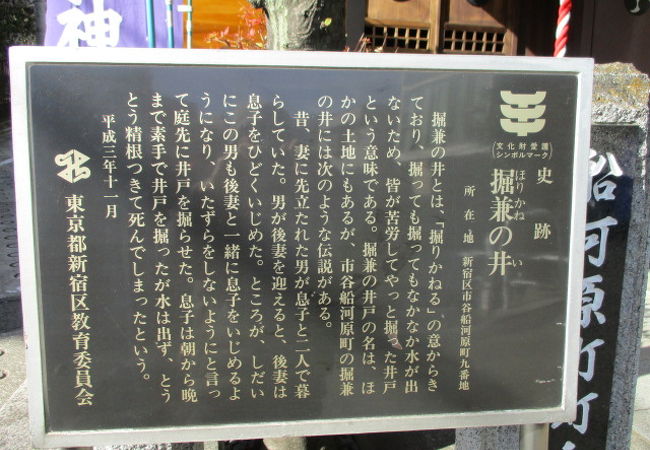 文化財愛護
シンボルマーク
史跡
掘兼の井
ほりかね い
所在地 新宿区市谷船河原町九番地
掘兼の井とは、「掘りかねる」の意からき
ており、掘っても掘ってもなかなか水が出
ないため、皆が苦労してやっと掘った井戸
という意味である。掘兼の井戸の名は、ほ
かの土地にもあるが、市谷船河原町の掘兼
の井には次のような伝説がある。
昔、妻に先立たれた男が息子と二人で暮
らしていた。男が後妻を迎えると、後妻は
息子をひどくいじめた。ところが、しだい
にこの男も後妻と一緒に息子をいじめるよ
うになり、いたずらをしないようにと言っ
て庭先に井戸を掘らせた。息子は朝から晩
まで素手で井戸を掘ったが水は出ず、とう
とう精根つきて死んでしまったという。
平成三年十一月
東京都新宿区教育委員会
船河原町町
神